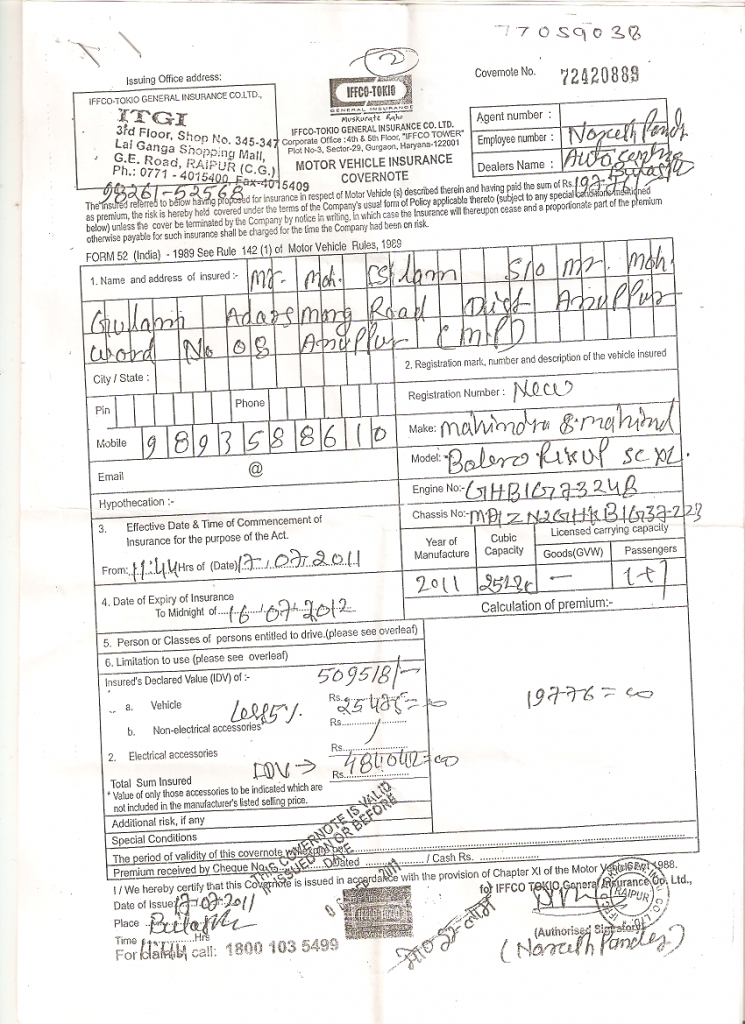 77059038
2
Issuing Office address:
Covernote No. 72420889
IFFCO-TOKIO GENERAL INSURANCE CO.LTD.,
ITGI
3rd Floor, Shop No. 345-347
Lal Ganga Shopping Mall,
G.E. Road, RAIPUR (C.G.)
Ph.: 0771 - 4015400 Fax-4015409
98261-52568
IFFCO-TOKIO
GENERAL INSURANCE
Muskurate Raho
IFFCO-TOKIO GENERAL INSURANCE CO. LTD.
Corporate Office :4th & 5th Floor, "IFFCO TOWER"
Plot No-3, Sector-29, Gurgaon, Haryana-122001
MOTOR VEHICLE INSURANCE
COVERNOTE
Agent number :
Employee number : Naresh Pandey
Dealers Name : Auto centre
The insured referred to below having proposed for insurance in respect of Motor Vehicle (s) described therein and having paid the sum of Rs.
as premium, the risk is hereby held covered under the terms of the Company's usual form of Policy applicable thereto (subject to any special conditions mentioned
below) unless the cover be terminated by the Company by notice in writing, in which case the Insurance will thereupon cease and a proportionate part of the premium
otherwise payable for such insurance shall be charged for the time the Company had been on risk.
FORM 52 (India) - 1989 See Rule 142 (1) of Motor Vehicle Rules, 1989
1. Name and address of insured :- Mr. Moh. Islam S/o Mr. Moh.
Gulam Adarsh Marg Road Dist Anuppur
Word No 08 Anuppur (M.P)
City / State :
Pin
Phone
Mobile 9893588610
Email @
Hypothecation :-
2. Registration mark, number and description of the vehicle insured
Registration Number : New
Make: Mahindra & Mahind
Model: Bolero Pikup SC XL.
Engine No:- GHB1G73248
Chassis No:-
Year of Manufacture
Cubic Capacity
Licensed carrying capacity
Goods(GVW)
Passengers
2011
—
1+1
3. Effective Date & Time of Commencement of
Insurance for the purpose of the Act.
From: 11:44 Hrs of (Date) 17.07.2011
4. Date of Expiry of Insurance
To Midnight of 16/07.2012
Calculation of premium:-
5. Person or Classes of persons entitled to drive.(please see overleaf)
6. Limitation to use (please see overleaf)
Insured's Declared Value (IDV) of :- 509518/-
a. Vehicle Less 5% Rs.
b. Non-electrical accessories Rs.
2. Electrical accessories Rs.
Total Sum Insured IDV → Rs. 484042=00
19776=00
* Value of only those accessories to be indicated which are
not included in the manufacturer's listed selling price.
Additional risk, if any
Special Conditions
The period of validity of this covernote will expire on
Premium received by Cheque No. Dated / Cash Rs.
THIS COVERNOTE IS VALID
ISSUED ON OR BEFORE
I / We hereby certify that this Covernote is issued in accordance with the provision of Chapter XI of the Motor Vehicles 1988.
for IFFCO TOKIO General Insurance Co. Ltd.,
RAIPUR
Date of Issue 17-07-2011
Place
Time 11:44 Hrs
For claim call: 1800 103 5499
(Authorised Signatory)
(Naresh Pandey)